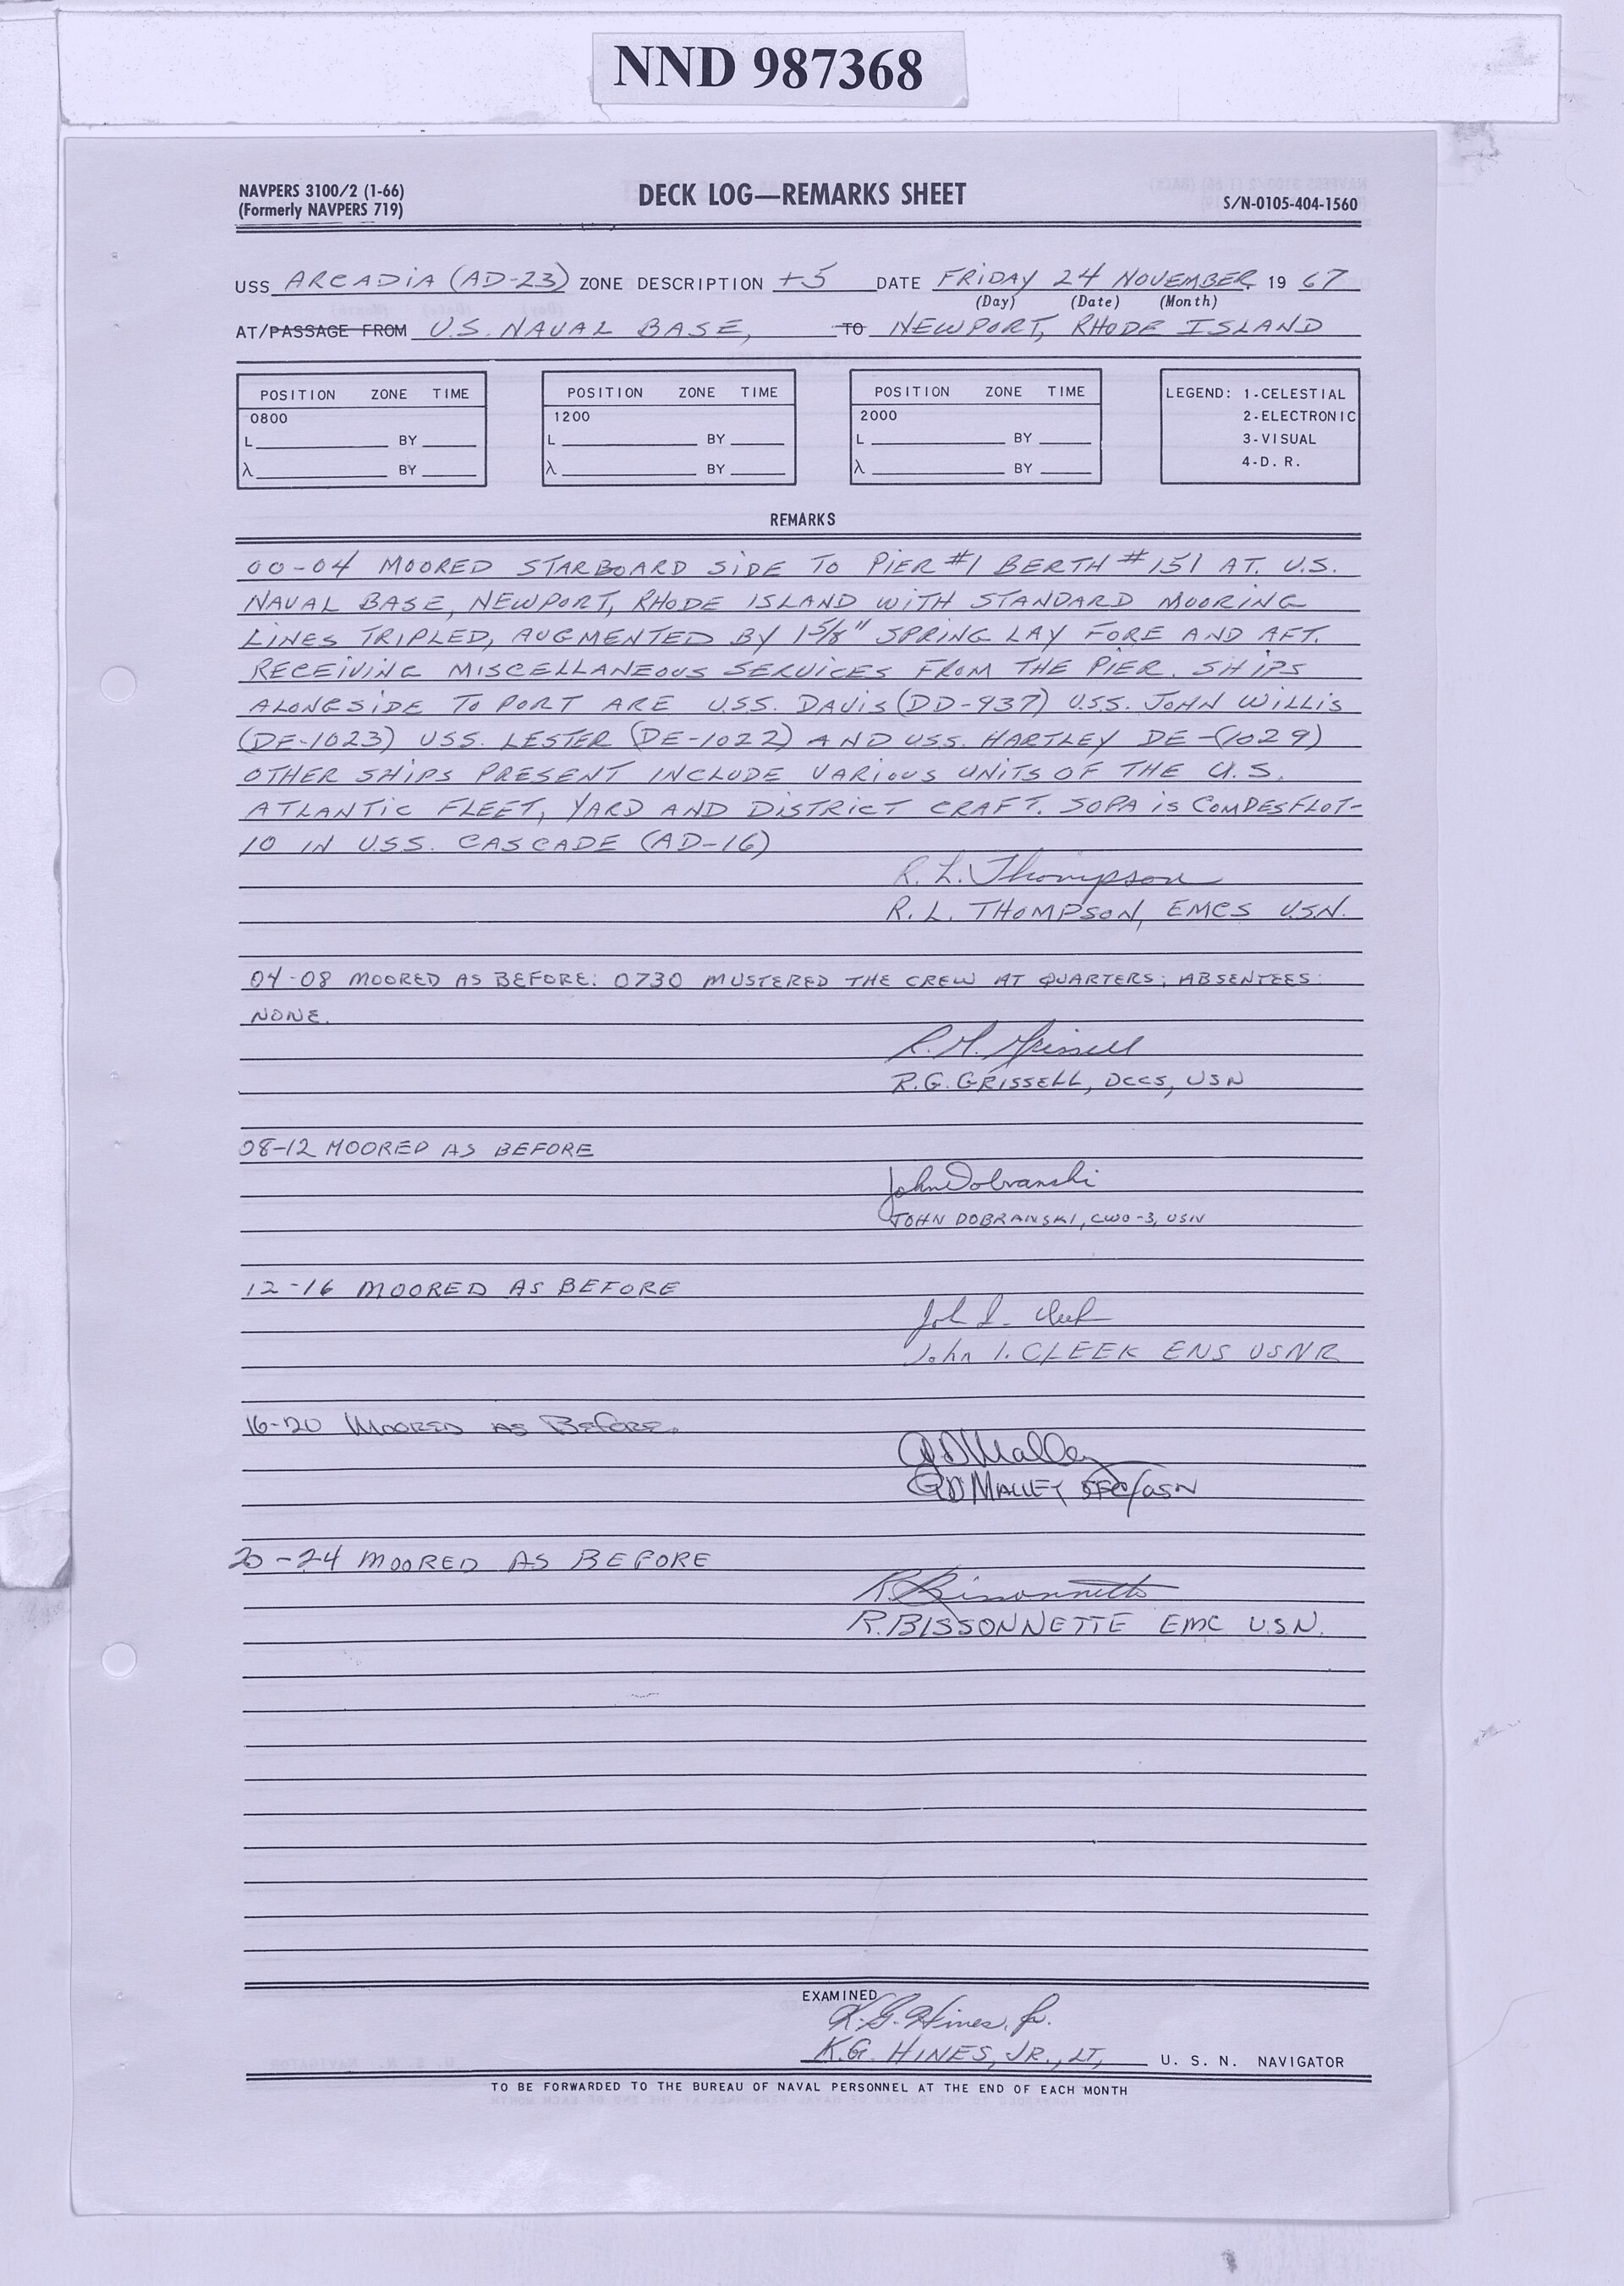 NND 987368
NAVPERS 3100/2 (1-66)
(Formerly NAVPERS 719)
DECK LOG—REMARKS SHEET
S/N-0105-404-1560
USS ARCADIA (AD-23) ZONE DESCRIPTION +5 DATE FRIDAY 24 NOVEMBER, 19 67
(Day) (Date) (Month)
AT/PASSAGE FROM U.S. NAVAL BASE, TO NEWPORT, RHODE ISLAND
POSITION ZONE TIME
0800
L BY
λ BY
POSITION ZONE TIME
1200
L BY
λ BY
POSITION ZONE TIME
2000
L BY
λ BY
LEGEND: 1-CELESTIAL
2-ELECTRONIC
3-VISUAL
4-D. R.
REMARKS
00-04 MOORED STARBOARD SIDE TO PIER #1 BERTH #151 AT. U.S.
NAVAL BASE, NEWPORT, RHODE ISLAND WITH STANDARD MOORING
LINES TRIPLED, AUGMENTED BY 1 5/8" SPRING LAY FORE AND AFT.
RECEIVING MISCELLANEOUS SERVICES FROM THE PIER. SHIPS
ALONGSIDE TO PORT ARE U.S.S. DAVIS (DD-937) U.S.S. JOHN WILLIS
(DE-1023) USS. LESTER (DE-1022) AND USS. HARTLEY DE-(1029)
OTHER SHIPS PRESENT INCLUDE VARIOUS UNITS OF THE U.S.
ATLANTIC FLEET, YARD AND DISTRICT CRAFT. SOPA is COMDESFLOT-
10 IN U.S.S. CASCADE (AD-16)
R. L. Thompson
R. L. THOMPSON, EMCS USN.
04-08 MOORED AS BEFORE: 0730 MUSTERED THE CREW AT QUARTERS; ABSENTEES:
NONE.
R. G. Grissell
R.G. GRISSELL, DCCS, USN
08-12 MOORED AS BEFORE
John Dobranski
JOHN DOBRANSKI, CWO-3, USN
12-16 MOORED AS BEFORE
John I. Cleek
John I. CLEEK ENS USNR
16-20 MOORED AS BEFORE.
GD Malley
GD MALLEY /USN
20-24 MOORED AS BEFORE
R. Bissonnette
R. BISSONNETTE EMC U.S.N.
EXAMINED
K.G. Hines, Jr.
K.G. HINES, JR., LT, U. S. N. NAVIGATOR
TO BE FORWARDED TO THE BUREAU OF NAVAL PERSONNEL AT THE END OF EACH MONTH